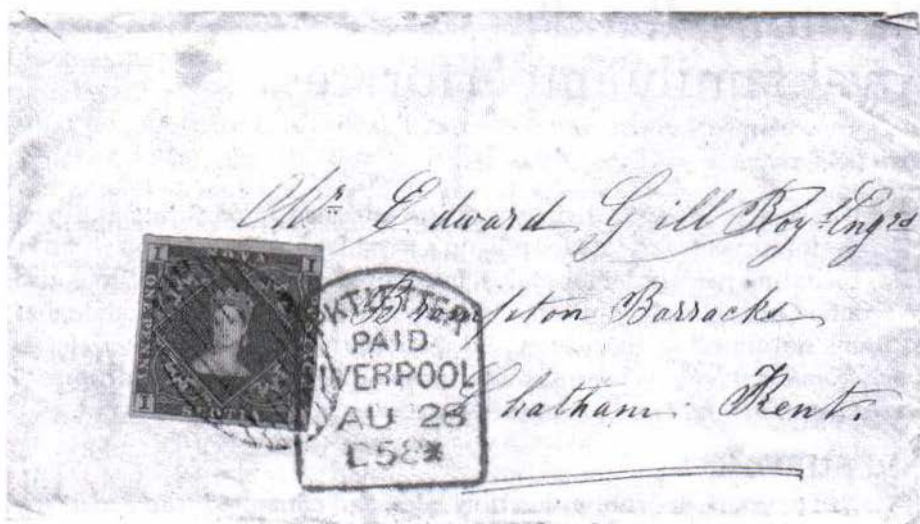 Mr. Edward Gill Roy.l Engrs
Brompton Barracks
Chatham. Kent.
1 NOVA 1
1 SCOTIA
PKT LETTER
PAID
LIVERPOOL
AU 28
58*